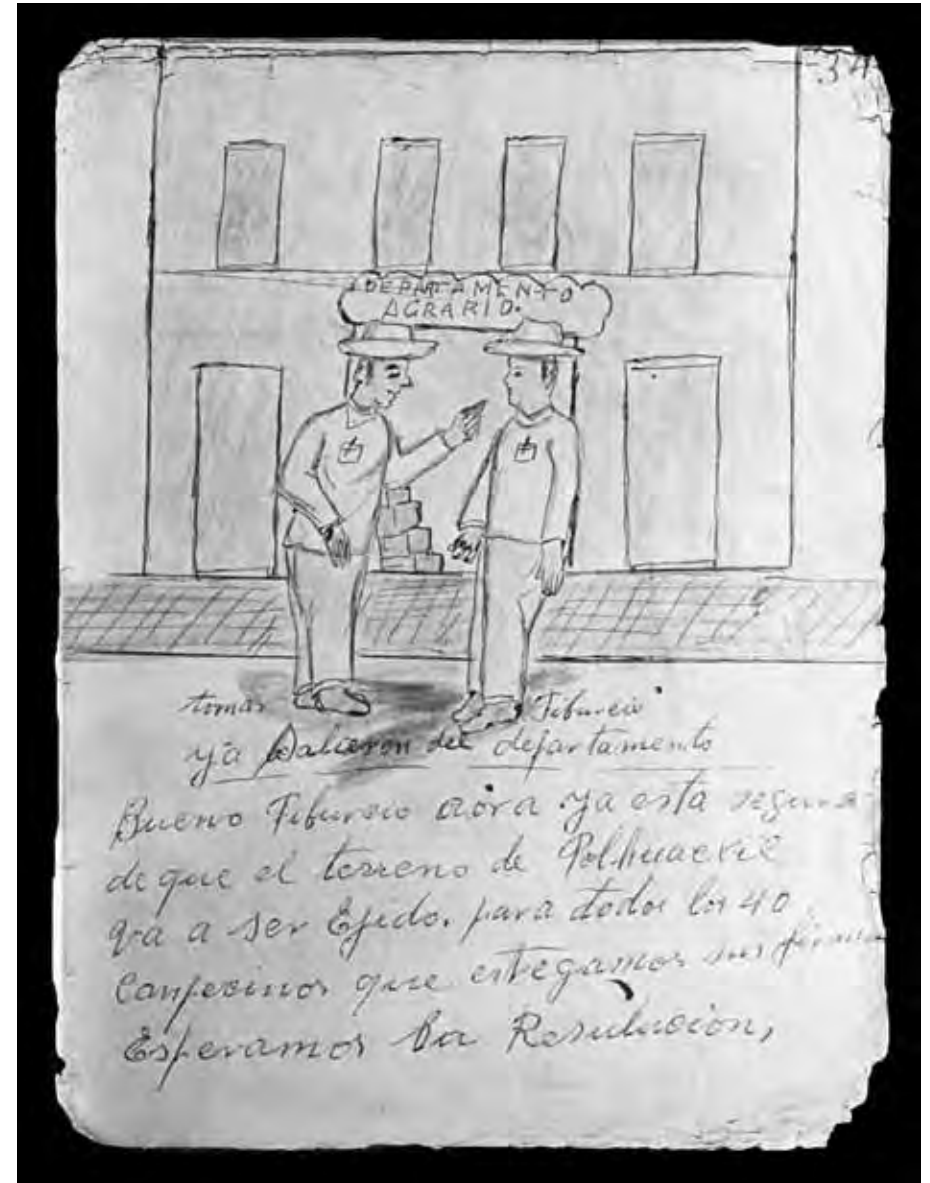 34
DEPARTAMENTO
AGRARIO.
tomas Tiburcio
ya Salieron del departamento
Bueno Tiburcio aóra ya esta segura
de que el terreno de
va a ser Ejido. para todos los 40
Canpecinos que estregamos sus firmas
Esperamos la Resulucion,